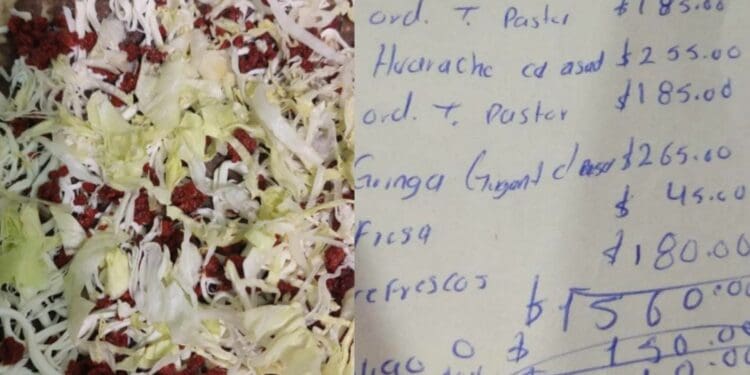 ord. T. Pastor $185.00
Huarache cd asad $255.00
ord. T. Pastor $185.00
Gringa Gigant d $265.00
$ 45.00
Fresa
$180.00
refrescos
$1560.00
0 $ 150.00